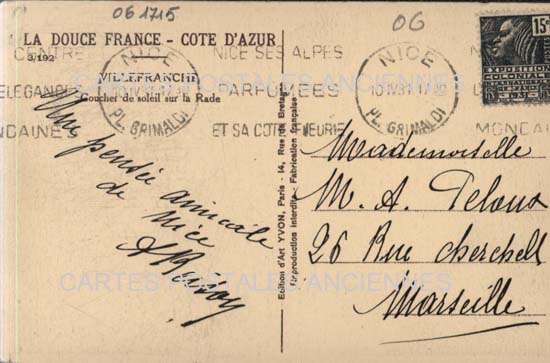 06 1715
06
LA DOUCE FRANCE - COTE D'AZUR
3/192
VILLEFRANCHE
Coucher de soleil sur la Rade
CENTRE
ELEGANCE
MONDAINE
NICE
PL. GRIMALDI
NICE SES ALPES
PARFUMEES
ET SA COTE FLEURIE
NICE
10 IV 31 17 30
PL. GRIMALDI
CENTRE
MONDAI
15
EXPOSITION
COLONIALE
CARTES POSTALES ANCIENNES
Une pensée amicale
de Nice
Edition d'Art YVON, Paris - 14, Rue de Bretagne
Reproduction interdite - Fabrication française
Mademoiselle
M. A. Peloux
26 Rue Cherchell
Marseille
CARTES POSTALES ANCIENNES